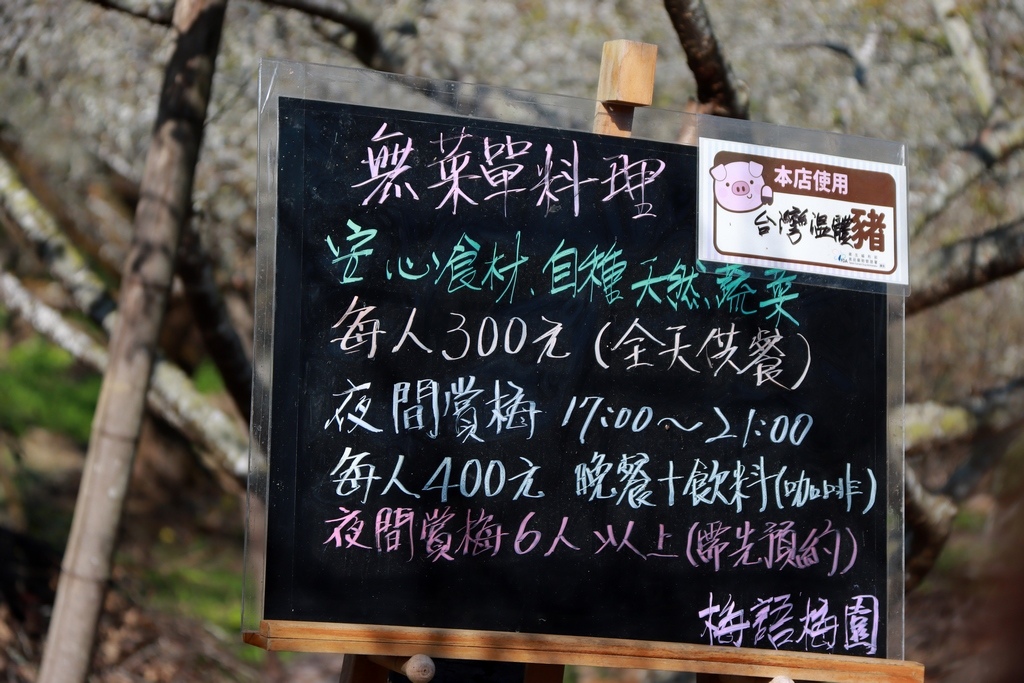 無菜單料理
安心食材、自種天然蔬菜
每人300元(全天供餐)
夜間賞梅 17:00~21:00
每人400元 晚餐+飲料(咖啡)
夜間賞梅6人以上(需先預約)
梅語梅園
本店使用
台灣溫體豬